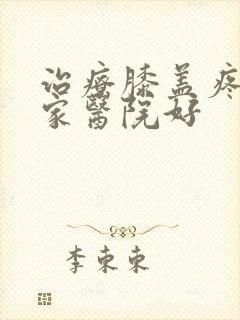 治疗膝盖疼
家醫院好
李東東